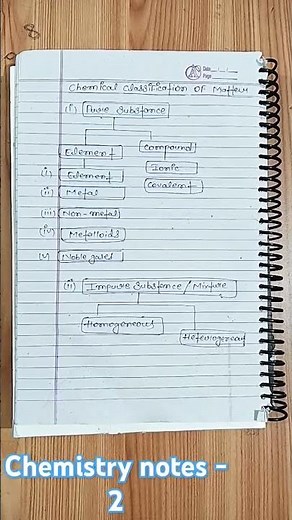 Date: __/__/__
Page
Chemical Classification Of Matter
(i) Pure Substance
Element Compound
Ionic
(i) Element
Covalent
(ii) Metal
(iii) Non-metal
(iv) Metalloids
(v) Noble gases
(ii) Impure Substance / Mixture
Homogeneous
Heterogeneous
Chemistry notes -
2